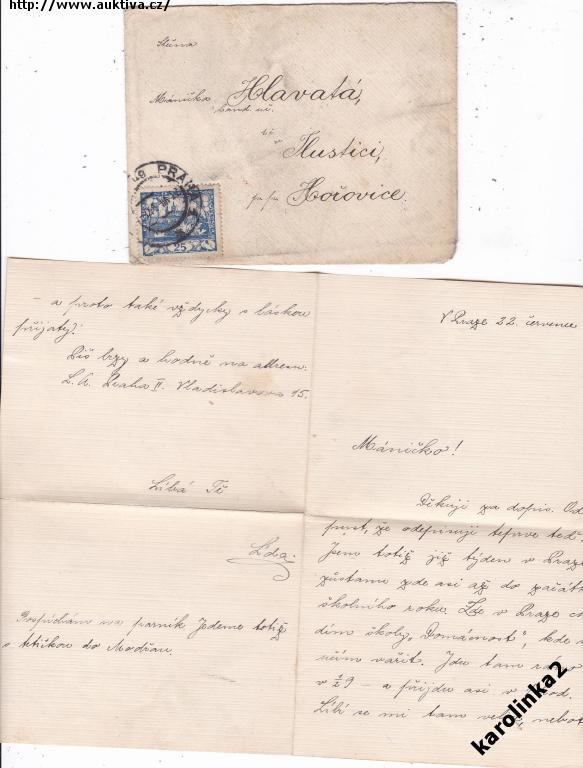 http://www.auktiva.cz/
Slečna
Mánička Hlavatá,
kand. uč.
Tlustici,
Hořovice.
PRAHA
25
– a proto také vždycky s láskou
přijatý.
Piš brzy a hodně na adresu:
L.A. Praha II. Vladislavova 15.
Líbá Tě
Lda.
Pospíchám na parník Jedeme totiž
s do Modřan.
V Praze 22. července
Máničko!
Děkuji za dopis. Od
pusť, že odepisuji teprve teď.
Jsem totiž již týden v Praze
zůstanu zde asi až do začátk
školního roku. Zde v Praze cho
dím školy „Domácnost", kde
učím vařit. Jdu tam
v ½9 – a přijdu asi v
Líbí se mi tam neboť
karolinka2